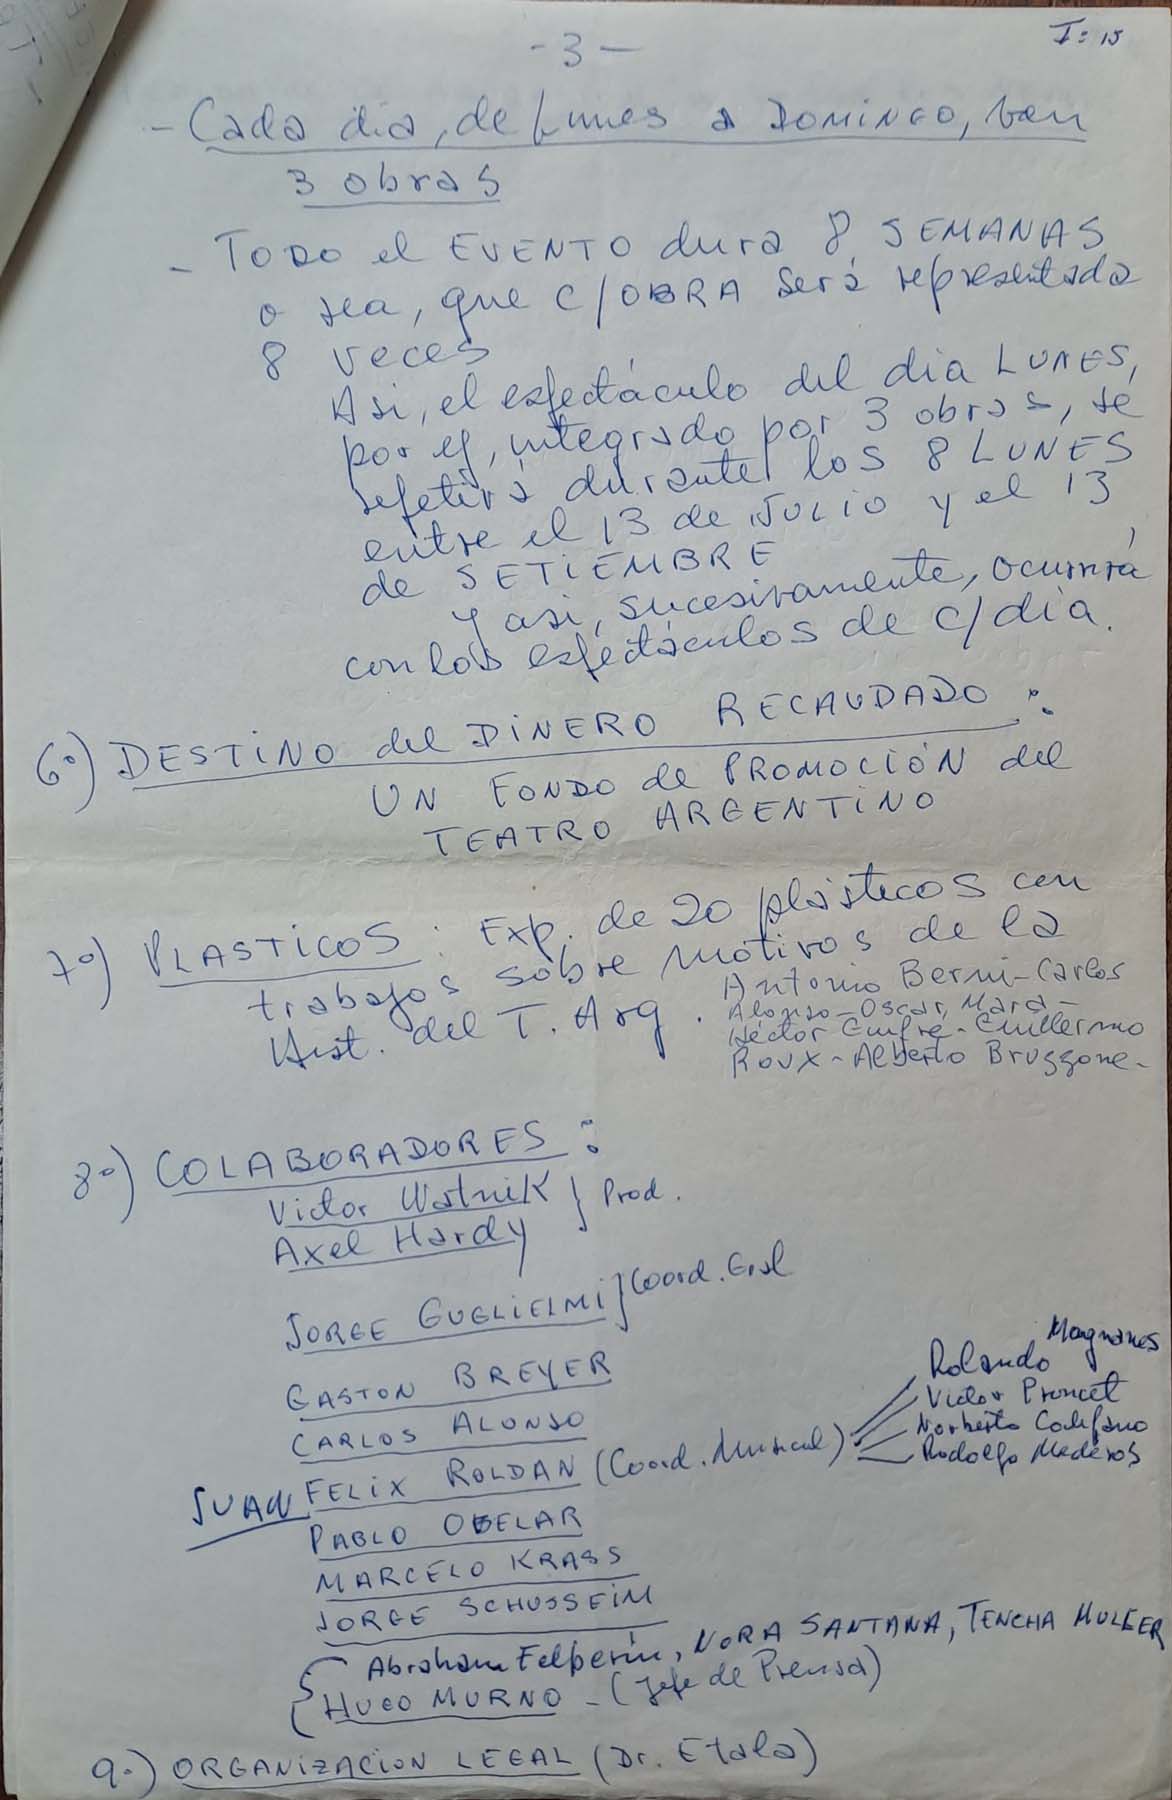 I: 15
- 3 -
- Cada dia, de Lunes a DOMINGO, van
3 obras
- TODO el EVENTO dura 8 SEMANAS
o sea, que c/OBRA será representada
8 veces
Asi, el espectáculo del dia LUNES,
por ej, integrado por 3 obras, se
repetirá durante los 8 LUNES
entre el 13 de JULIO y el 13
de SETIEMBRE,
y asi, sucesivamente, ocurrirá
con los espectáculos de c/dia.
6º) DESTINO del DINERO RECAUDADO:
UN FONDO de PROMOCIÓN del
TEATRO ARGENTINO
7º) PLASTICOS: Exp. de 20 plásticos con
trabajos sobre motivos de la
Hist. del T. Arg.
Antonio Berni - Carlos
Alonso - Oscar, Mara -
Héctor - Guillermo
Roux - Alberto Bruzzone -
8º) COLABORADORES:
Victor Watnik } Prod.
Axel Hardy
JORGE GUGLIELMI } Coord. Gral
GASTON BREYER
CARLOS ALONSO
JUAN FELIX ROLDAN (Coord. Musical)
Rolando Magnanes
Victor Proncet
Norberto Califano
Rodolfo Mederos
PABLO OBELAR
MARCELO KRASS
JORGE SCHUSSEIM
{ Abraham Felperin, NORA SANTANA, TENCHA
HUGO MURNO - (Jefe de Prensa)
9º) ORGANIZACION LEGAL (Dr. Etala)